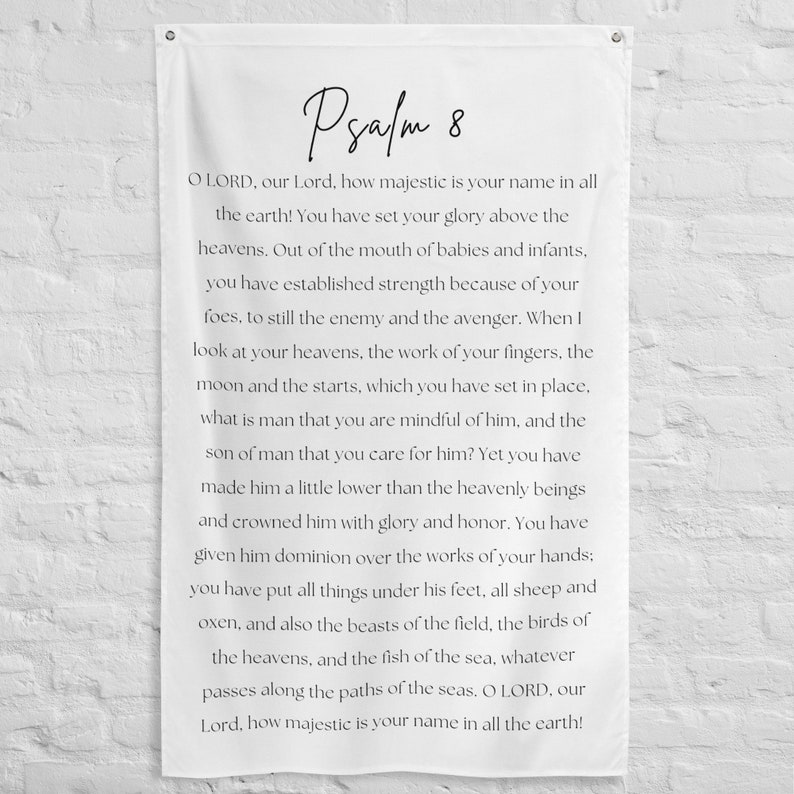 Psalm 8
O LORD, our Lord, how majestic is your name in all
the earth! You have set your glory above the
heavens. Out of the mouth of babies and infants,
you have established strength because of your
foes, to still the enemy and the avenger. When I
look at your heavens, the work of your fingers, the
moon and the starts, which you have set in place,
what is man that you are mindful of him, and the
son of man that you care for him? Yet you have
made him a little lower than the heavenly beings
and crowned him with glory and honor. You have
given him dominion over the works of your hands;
you have put all things under his feet, all sheep and
oxen, and also the beasts of the field, the birds of
the heavens, and the fish of the sea, whatever
passes along the paths of the seas. O LORD, our
Lord, how majestic is your name in all the earth!